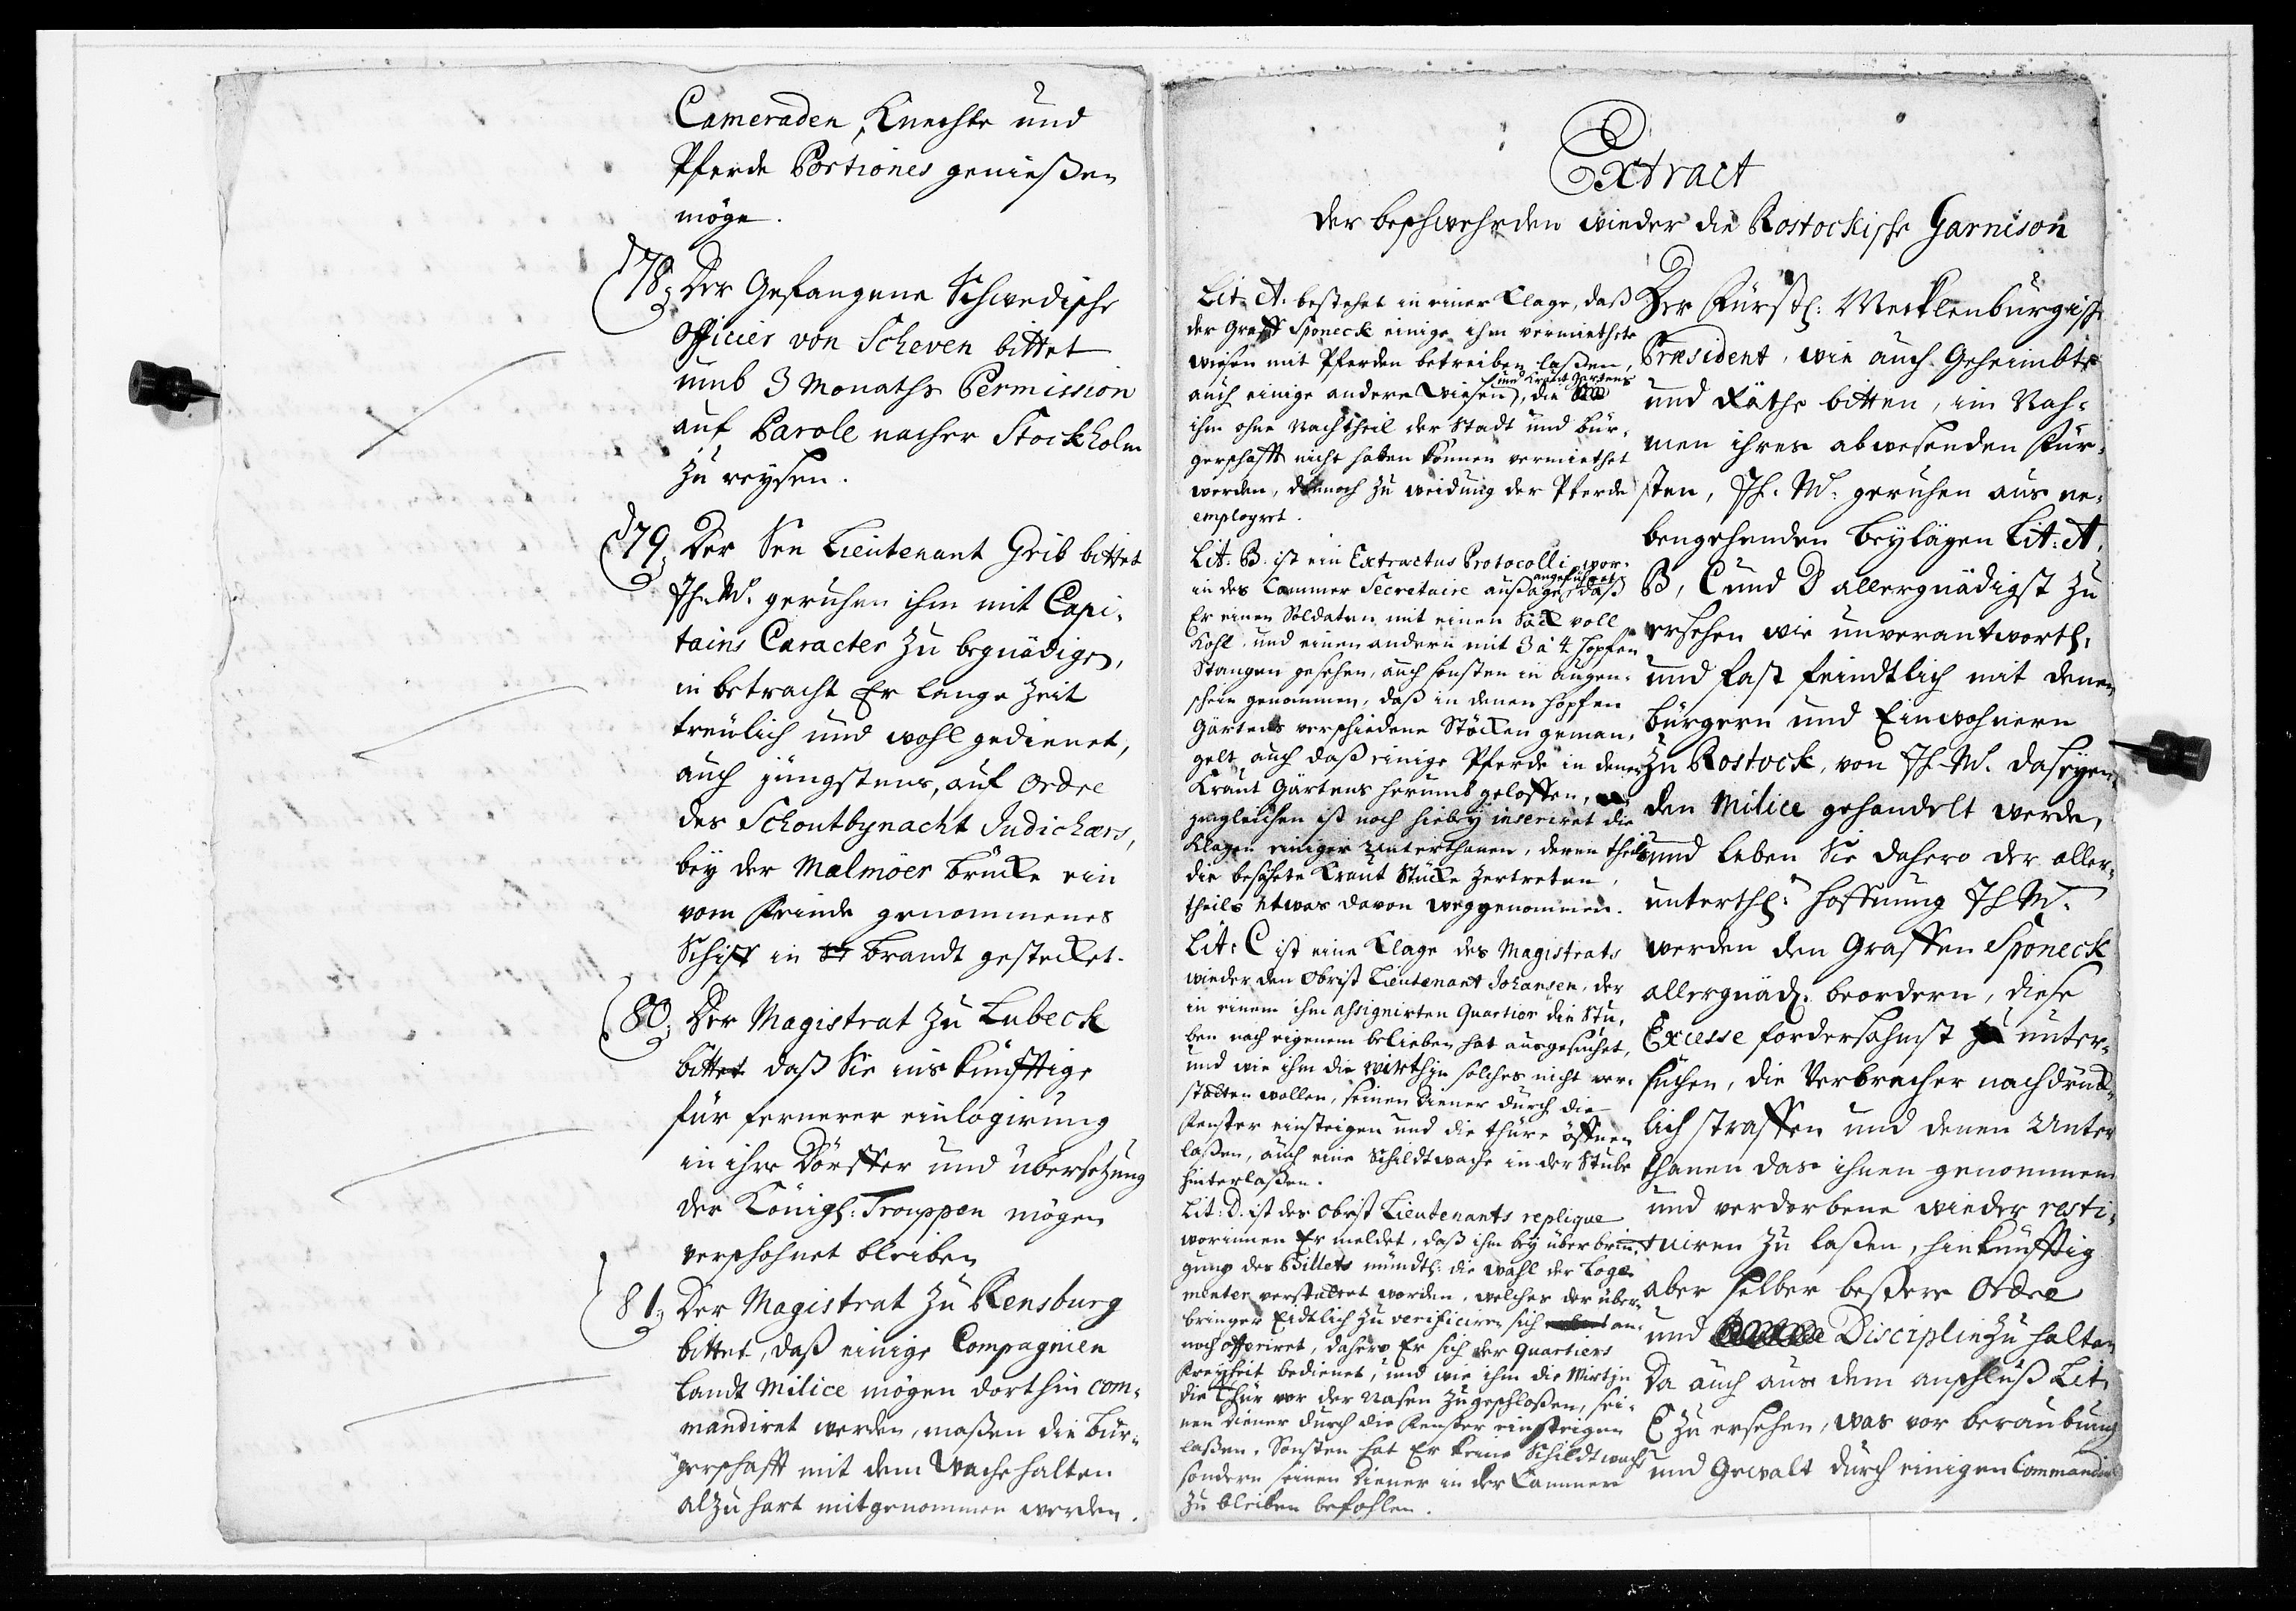 Cameraden, Knechte und
Pferde Portiones genießen
möge.
78. Der Gefangene Schwedische
Officier von Scheven bittet
umb 3 Monaths Permission
auf Parole nacher Stockholm
zu reysen.
79. Der See Lieutenant Grib bittet
Jh. M. geruhen ihm mit Capi-
tains Caracter zu begnädigen,
in betracht Er lange Zeit
treülich und wohl gedienet,
auch jüngstens, auf Ordre
des Schoutbynacht Judichærs,
bey der Malmöer brücke ein
vom Feinde genommenes
Schiff in brandt gestecket.
80. Der Magistrat zu Lubeck
bittet daß Sie ins künfftige
für fernerer einlogirung
in ihre Dörffer und übersetzung
der Königl: Trouppen mögen
verschohnet bleiben
81. Der Magistrat zu Rensburg
bittet, daß einige Compagnien
Landt Milice mögen dorthin com-
mandiret werden, maßen die bür-
gerschafft mit dem Wache halten
alzu hart mitgenommen werden.
Extract
der beschwehrden wieder die Rostockische Garnison
Lit: A. bestehet in einer Klage, daß
der Graff Sponeck einige ihm vermiethete
wiesen mit Pferden betreiben laßen,
auch einige andere Wiesen und Kraut Gärtens, die
ihm ohne Nachtheil der Stadt und bür-
gerschafft nicht haben können vermiethet
werden, dennoch zu weidung der Pferde
employret.
Lit: B. ist ein Extractus Protocolli, wor-
in des Cammer Secretaire außage angeführet, daß
Er einen Soldaten mit einen Sack voll
Kohl, und einen andern mit 3 à 4 Hopfen
Stangen gesehen, auch sonsten in augen-
schein genommen, daß in denen Hopfen
Gärtens verschiedene Stöcken geman-
gelt, auch daß einige Pferde in denen
Kraut Gärtens herumb geloffen,
ingleichen ist noch hiebey inseriret die
Klagen einiger Unterthanen, deren theils
die besähete Kraut Stücke zertreten,
theils etwas davon weggenommen.
Lit: C ist eine Klage des Magistrats
wieder den Obrist Lieutenant Johansen, der
in einem ihm assignirten Quartier die Stu-
ben nach eigenem belieben hat ausgesuchet,
und wie ihm die Wirthin solches nicht ver-
statten wollen, seinen Diener durch die
Fenster einsteigen und die thüre öffnen
laßen, auch eine Schildtwache in der Stube
hinterlaßen.
Lit: D. ist des Obrist Lieutenants replique
worinnen Er meldet, daß ihm bey überbrin-
gung des Billets mündtl: die Wahl der Loge-
menter verstattet worden, welches der über-
bringer Eidtlich zu verificiren sich an-
noch offeriret, dahero Er sich der Quartiers
Freyheit bedienet, und wie ihm die Wirtin
die Thür vor der Nasen zugeschloßen, sei-
nen Diener durch die Fenster einsteigen
laßen. Sonsten hat Er keine Schildtwach
sondern seinen Diener in der Cammer
zu bleiben befohlen.
Der Fürstl: Mecklenburgisch
Præsident, wie auch Geheimbte
und Räthe bitten, im Nah-
men ihres abwesenden Für-
sten, Jh. M. geruhen aus ne-
bengehenden beylagen Lit: A,
B, C und D allergnädigst zu
ersehen wie unverantwortl.
und fast feindtlich mit denen
bürgern und Einwohnern
zu Rostock, von Jh. M. daseyen-
den Milice gehandelt werde,
und leben Sie dahero der aller-
unterthl: Hoffnung Jh M.
werden den Graffen Sponeck
allergnäd. beordern, diese
Excesse fordersahmst zu unter-
suchen, die Verbrecher nachdrück-
lich straffen und denen Unter
thanen das ihnen genommen
und verdorbene wieder resti-
tuiren zu laßen, hinkünfftig
aber selber beßere Ordre
und Disciplin zu halten
Da auch aus dem anschluß Lit.
E zu ersehen, was vor beraubung
und Gewalt durch einigen Commandir